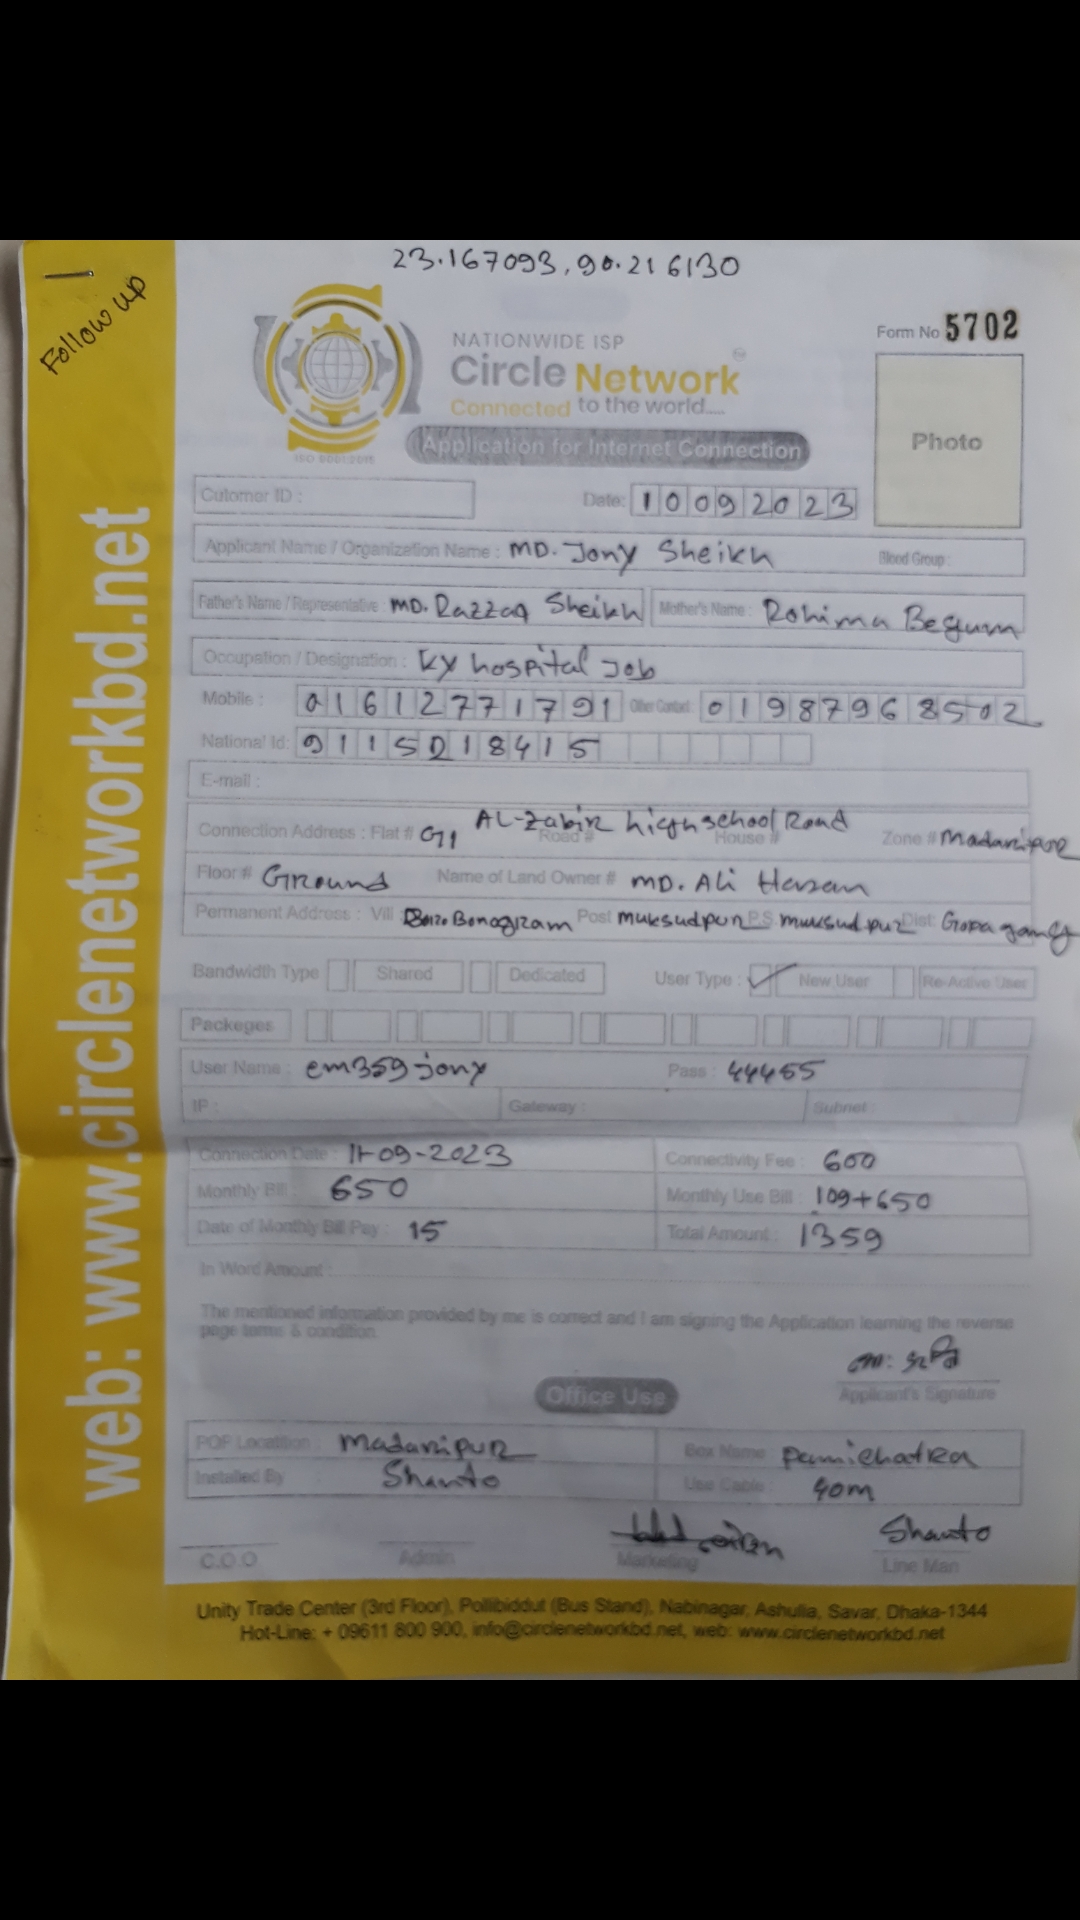 23.167093, 90.216130
Follow up
NATIONWIDE ISP
Form No 5702
Circle Network
Connected to the world.....
ISO 9001:2015
Application for Internet Connection
Photo
Cutomer ID :
Date: 10092023
Applicant Name / Organization Name : MD. Jony Sheikh Blood Group :
Father's Name / Representative : MD. Razzaq Sheikh Mother's Name : Rohima Begum
Occupation / Designation : KY hospital Job
Mobile : 01612771791 Other Contact: 01987968502
National Id: 9115018415
E-mail :
Connection Address : Flat # G1 Road # AL-Zabir high school Road House # Zone # Madaripur
Floor # Ground Name of Land Owner # MD. Ali Hasan
Permanent Address : Vill : Bonogram Post muksudpur P.S muksudpur Dist:
Bandwidth Type Shared Dedicated User Type : ✓ New User Re-Active User
Packeges
User Name : em359-jony Pass : 44455
IP : Gateway : Subnet :
Connection Date : 11-09-2023 Connectivity Fee : 600
Monthly Bill : 650 Monthly Use Bill : 109+650
Date of Monthly Bill Pay : 15 Total Amount : 1359
In Word Amount :
The mentioned information provided by me is correct and I am signing the Application learning the reverse
page terms & condition.
Applicant's Signature
Office Use
POP Locatition : Madaripur Box Name :
Installed By Shanto Use Cable : 40m
Shanto
C.O.O Admin Marketing Line Man
Unity Trade Center (3rd Floor), Pollibiddut (Bus Stand), Nabinagar, Ashulia, Savar, Dhaka-1344
Hot-Line: + 09611 800 900, info@circlenetworkbd.net, web: www.circlenetworkbd.net
web: www.circlenetworkbd.net